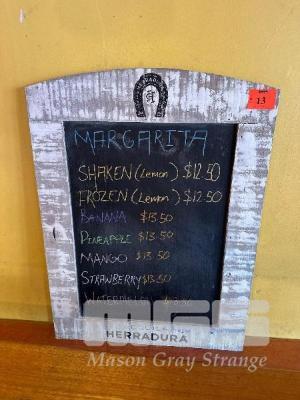 13
MARGARITA
SHAKEN (Lemon) $12.50
FROZEN (Lemon) $12.50
BANANA $13.50
PINEAPPLE $13.50
MANGO $13.50
STRAWBERRY $13.50
WATERMELON
HERRADURA
Mason Gray Strange